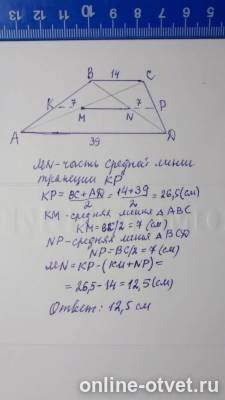 5 6 7 8 9 10 11 12 13
B 14 C
K 7 7 P
M N
A D
39
MN-часть средней линии
трапеции KP
KP = BC+AD/2 = 14+39/2 = 26,5(см)
KM - средняя линия △ABC
KM = BC/2 = 7 (см)
NP - средняя линия △BCD
NP = BC/2 = 7 (см)
MN = KP-(KM+NP) =
= 26,5 - 14 = 12,5 (см)
Ответ: 12,5 см
online-otvet.ru